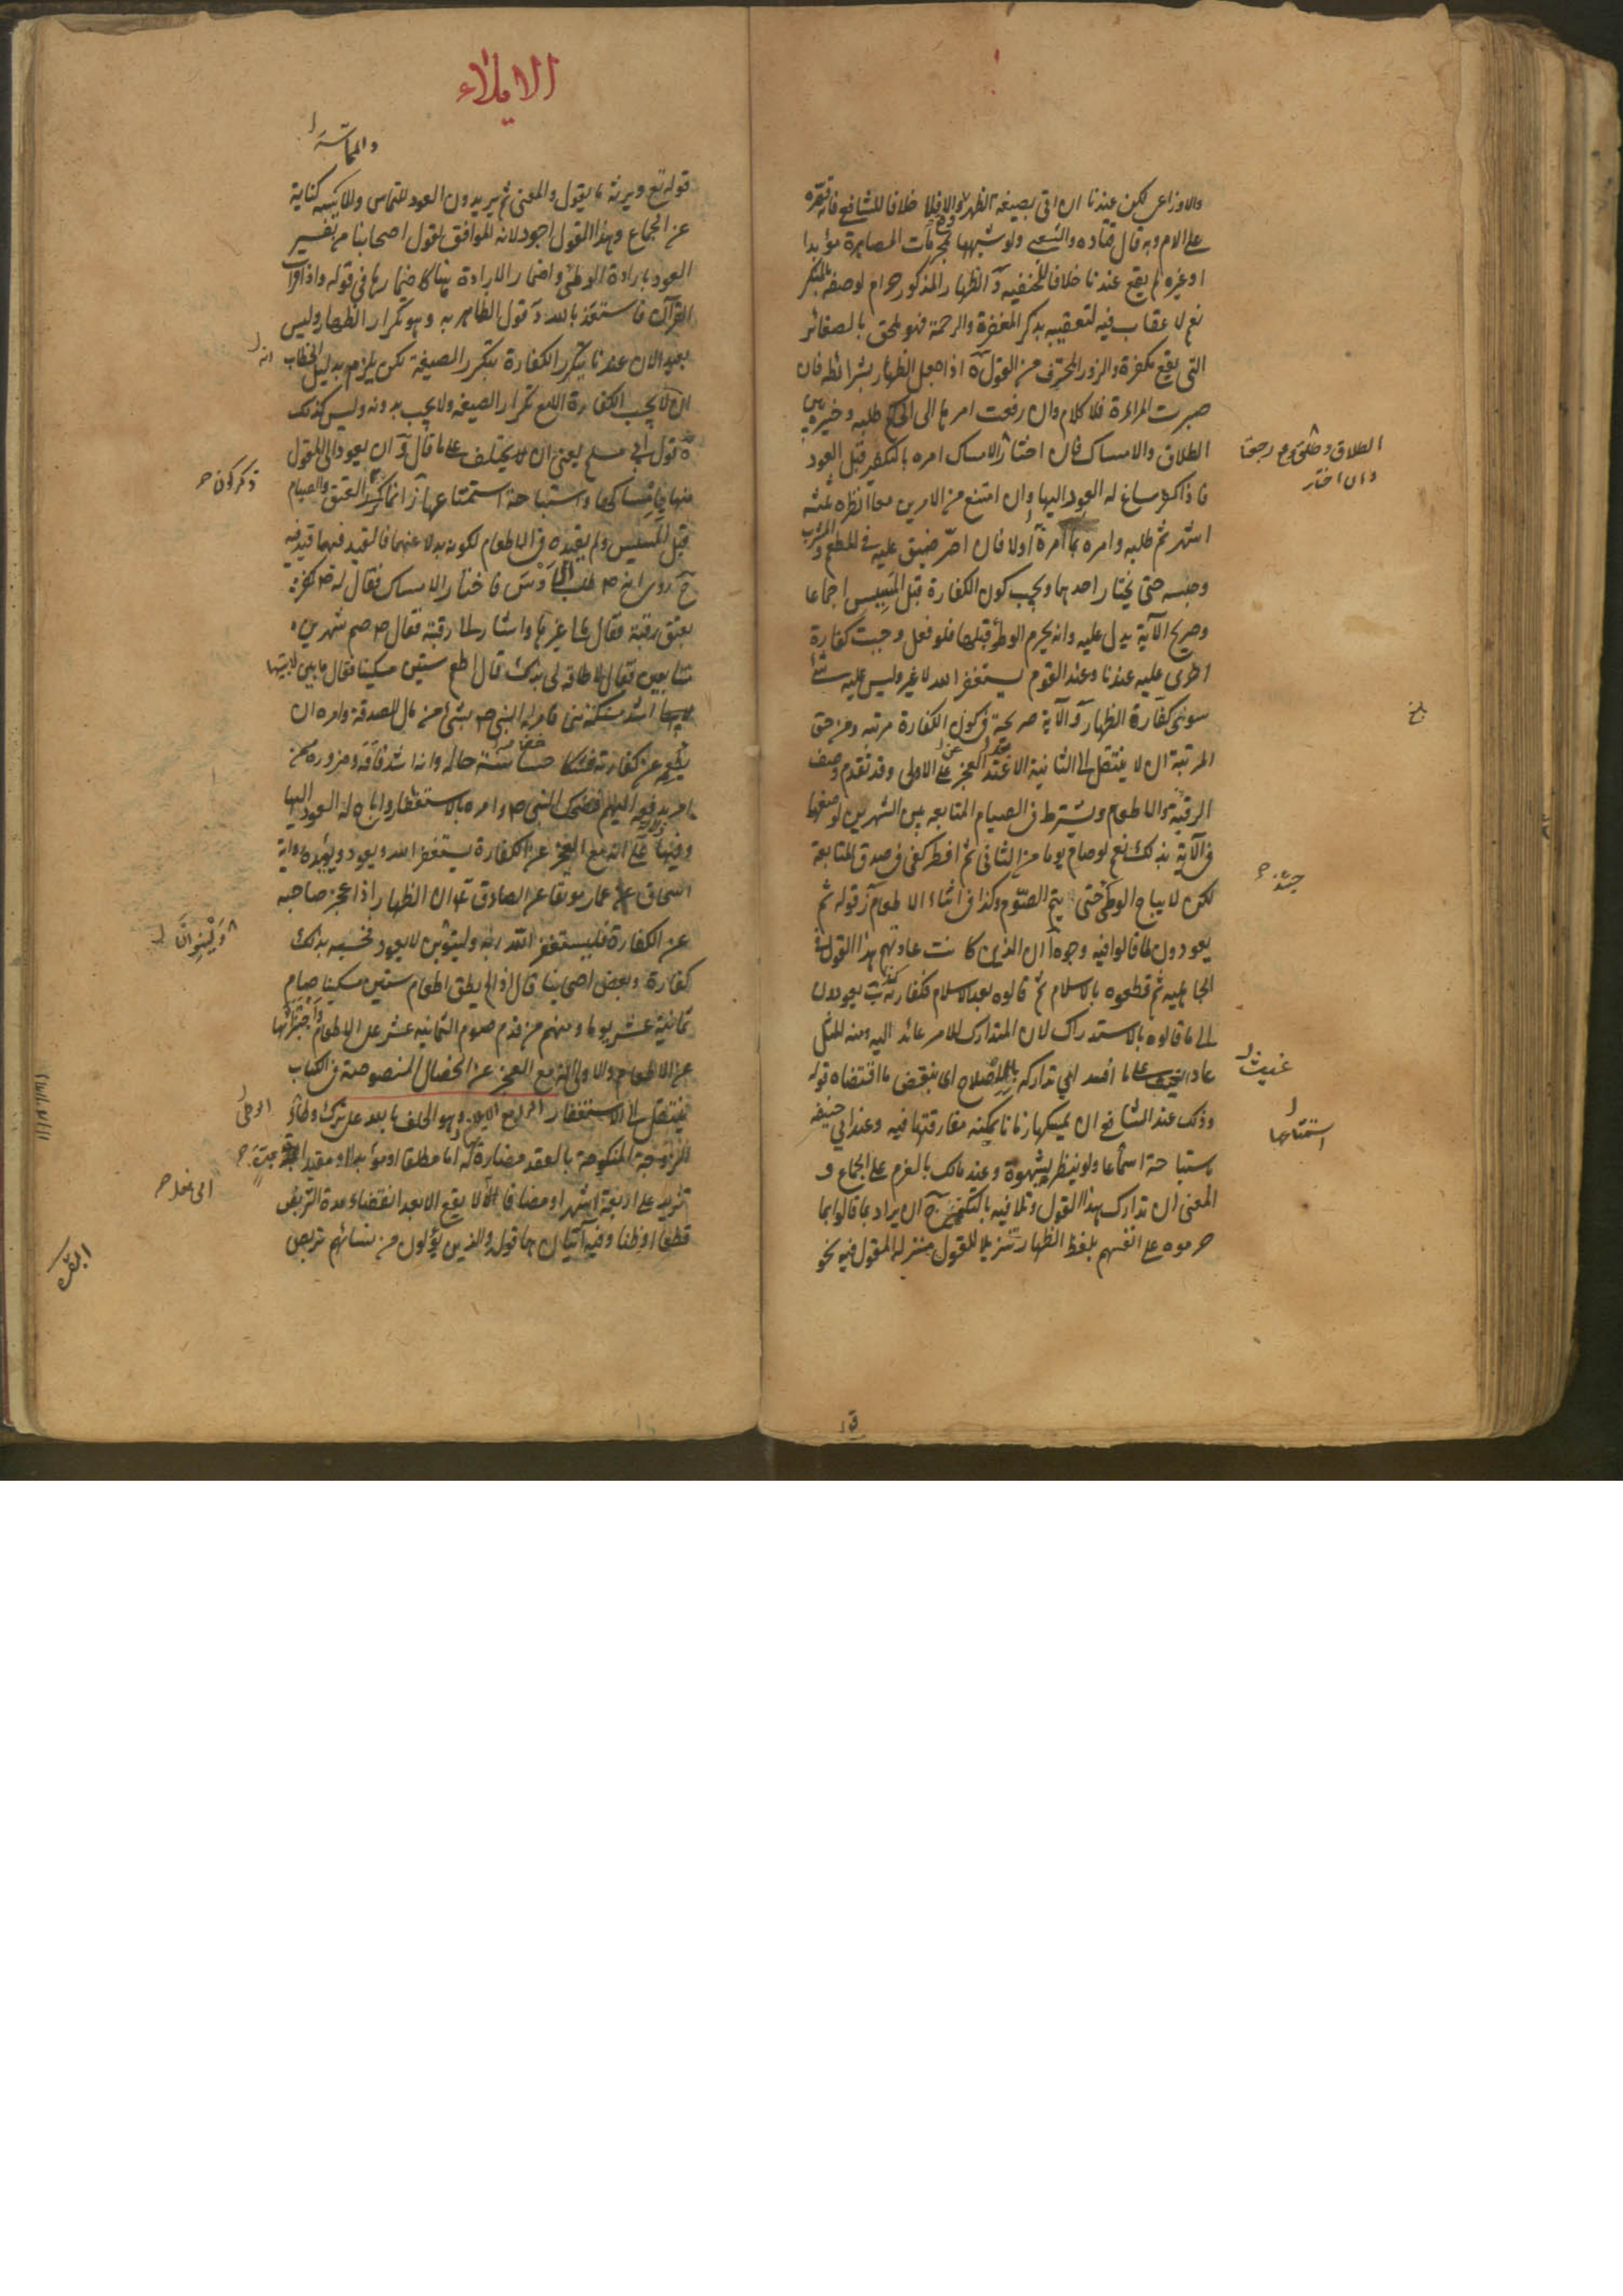 والاوزاعى لكن عندنا ان اتى بصيغة الظهر والا فلا خلافا للشافعى فانه قصره
على الام وبه قال قتاده والشعبى ولو شبهها بمحرمات المصاهرة مؤبدا
او غيره لم يقع عندنا خلافا للحنفيه و الظهار المذكور حرام لوصفه بالمنكر
نعم لا عقاب فيه لتعقيبه بذكر المغفرة والرحمة فهو ملحق بالصغائر
التى يقع مكفرة والزور المحرف من القول ة اذا حصل الظهار بشرائطه فان
صبرت المراة فلا كلام وان رفعت امرها الى الحاكم طلبه وخيره بين
الطلاق والامساك فان اختار الامساك امره بالتكفير قبل العود
الطلاق وطلق وقع رجعيا
وان اختار
فاذا كفر ساغ له العود اليها وان امتنع من الامرين معا انظره ثلثه
اشهر ثم طلبه وامره بما امره اولا فان اصر ضيق عليه فى المطعم والمشرب
وحبسه حتى يختار احدهما ويجب كون الكفارة قبل المسيس اجماعا
وصريح الآية يدل عليه وانه يحرم الوطؤ قبلها فلو فعل وجبت كفارة
اخرى عليه عندنا وعند القوم يستغفر الله لا غير وليس عليه شئ
سوى كفارة الظهار و الآية صريحة فى كون الكفارة مرتبه ومن حق
المرتبة ان لا ينتقل الى الثانية الا عند العجز عن الاولى وقد تقدم وصف
الرقبة والاطعام ويشترط فى الصيام المتابعه بين الشهرين لوصفهما
فى الآية بذلك نعم لو صام يوما من الثانى ثم افطر كفى فى صدق المتابعة
لكن لا يباح الوطى حتى يتم الصوم وكذا فى اثناء الاطعام ز قوله ثم
يعودون لما قالوا فيه وجوه ا ان الذين كانت عادتهم هذا القول فى
الجاهليه ثم قطعوه بالاسلام ثم قالوه بعد الاسلام فكفارته كذا ب يعودون
الى ما قالوه بالاستدراك لان المتدارك للامر عائد اليه ومنه المثل
عاد الغيث على ما افسد اى تداركه بالاصلاح اى بنقض ما اقتضاه قوله
غيث
وذلك عند الشافعى ان يمسكها زمانا يمكنه مفارقتها فيه وعند ابى حنيفه
باستباحة استمتاعها ولو بنظر بشهوة وعند مالك بالعزم على الجماع و
استمتاعها
المعنى ان تدارك هذا القول وتلافيه بالتكفير ج ان يراد بما قالوا بما
حرموه على انفسهم بلفظ الظهار تنزيلا للقول منزله المقول فيه نحو
الايلاء
والمماسة
قوله تع ونرثه ما يقول والمعنى ثم يريدون العود للتماس والمماسه كناية
عن الجماع وهذا القول اجود لانه الموافق لقول اصحابنا من تفسير
العود بارادة الوطئ واضمار الارادة هنا كاضمارها فى قوله واذا قرات
القرآن فاستعذ بالله د قول الظاهريه وهو تكرار الظهار وليس
بعيد الان عندنا يتكرر الكفارة بتكرر الصيغة لكن يلزم بدليل الخطاب
ان لا يجب الكفارة الا مع تكرار الصيغه ولا يجب بدونه وليس كذلك
ه قول ابى مسلم يعنى ان يحلف على ما قال و ان يعود الى المقول
منها بامساكها واستباحة استمتاعها ز انما ذكر العتق والصيام
قبل المسيس ولم يقيده فى الاطعام لكونه بدلا عنهما فالقيد فيهما قيد فيه
ح روى انه ص طلب اوس فاختار الامساك فقال له ص كفر
بعتق رقبة فقال مالى غيرها واشار الى رقبته فقال ص صم شهرين
متتابعين فقال لا طاقه لى بذلك قال اطعم ستين مسكينا فقال ما بين لابيتها
اشد مسكنة منى فامر له النبى ص بشئ من مال الصدقة وامره ان
يطعمه عن كفارته فشكا خصاصة حاله وانه اشد فاقة وضرورة ممن
امر بدفعه اليهم فضحك النبى ص وامره بالاستغفار واباح له العود اليها
وفيها دلالة على انه مع العجز عن الكفارة يستغفر الله ويعود ويؤيده رواية
اسحاق بن عمار موثقا عن الصادق ع ان الظهار اذا عجز صاحبه
عن الكفارة فليستغفر الله ربه ولينوين لا يعود فحسبه بذلك
وَلْيَنْوِيَنَّ
كفارة وبعض اصحابنا قال اذا لم يطق اطعام ستين مسكينا صام
ثمانية عشر يوما ومنهم من قدم صوم الثمانيه عشر على الاطعام واجتزائها
عن الاطعام والاولى انه مع العجز عن الخصال المنصوصة فى الكتاب
ينتقل الى الاستغفار الرابع الايلاء وهو الحلف بالله على ترك وطئ
الزوجة المنكوحة بالعقد مضارة لها اما مطلقا او مؤبدا او مقيدا بمدة
تزيد على اربعة اشهر او مضافا الى ما لا يقع الا بعد انقضاء مدة التربص
قطعا او ظنا وفيه آيتان هما قوله والذين يؤلون من نسائهم تربص
البقره